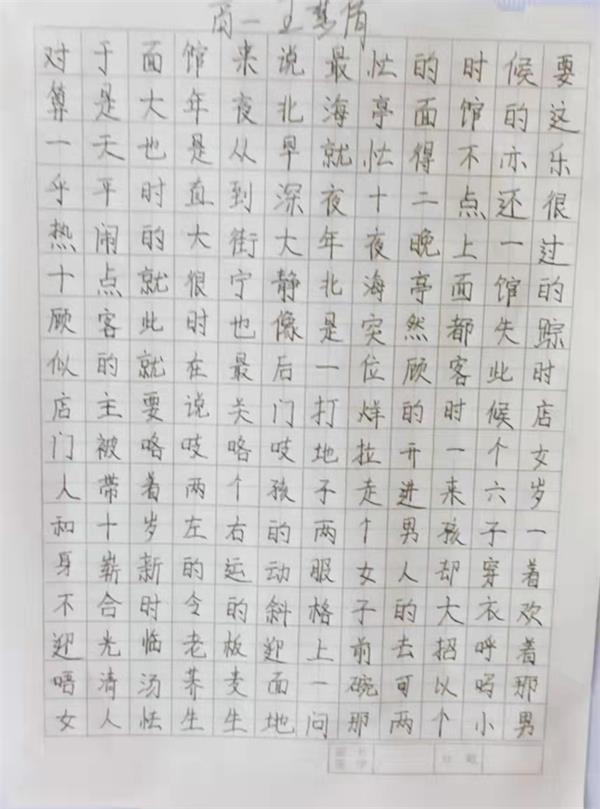 对于面馆来说最忙的时候要
算是大年夜北海亭面馆的这
一天也是从早就忙得不亦乐
乎平时直到深夜十二点还很
热闹的大街大年夜晚上一过
十点就很宁静北海亭面馆的
顾客此时也像是突然都失踪
似的就在最后一位顾客此时
店主要说关门打烊的时候店
门被咯吱咯吱地拉开一个女
人带着两个孩子走进来六岁
和十岁左右的两个男孩子一
身崭新的运动服女人却穿着
不合时令的斜格子的大衣欢
迎光临老板迎上前去招呼着
唔清汤荞麦面一碗可以吗那
女人怯生生地问那两个小男